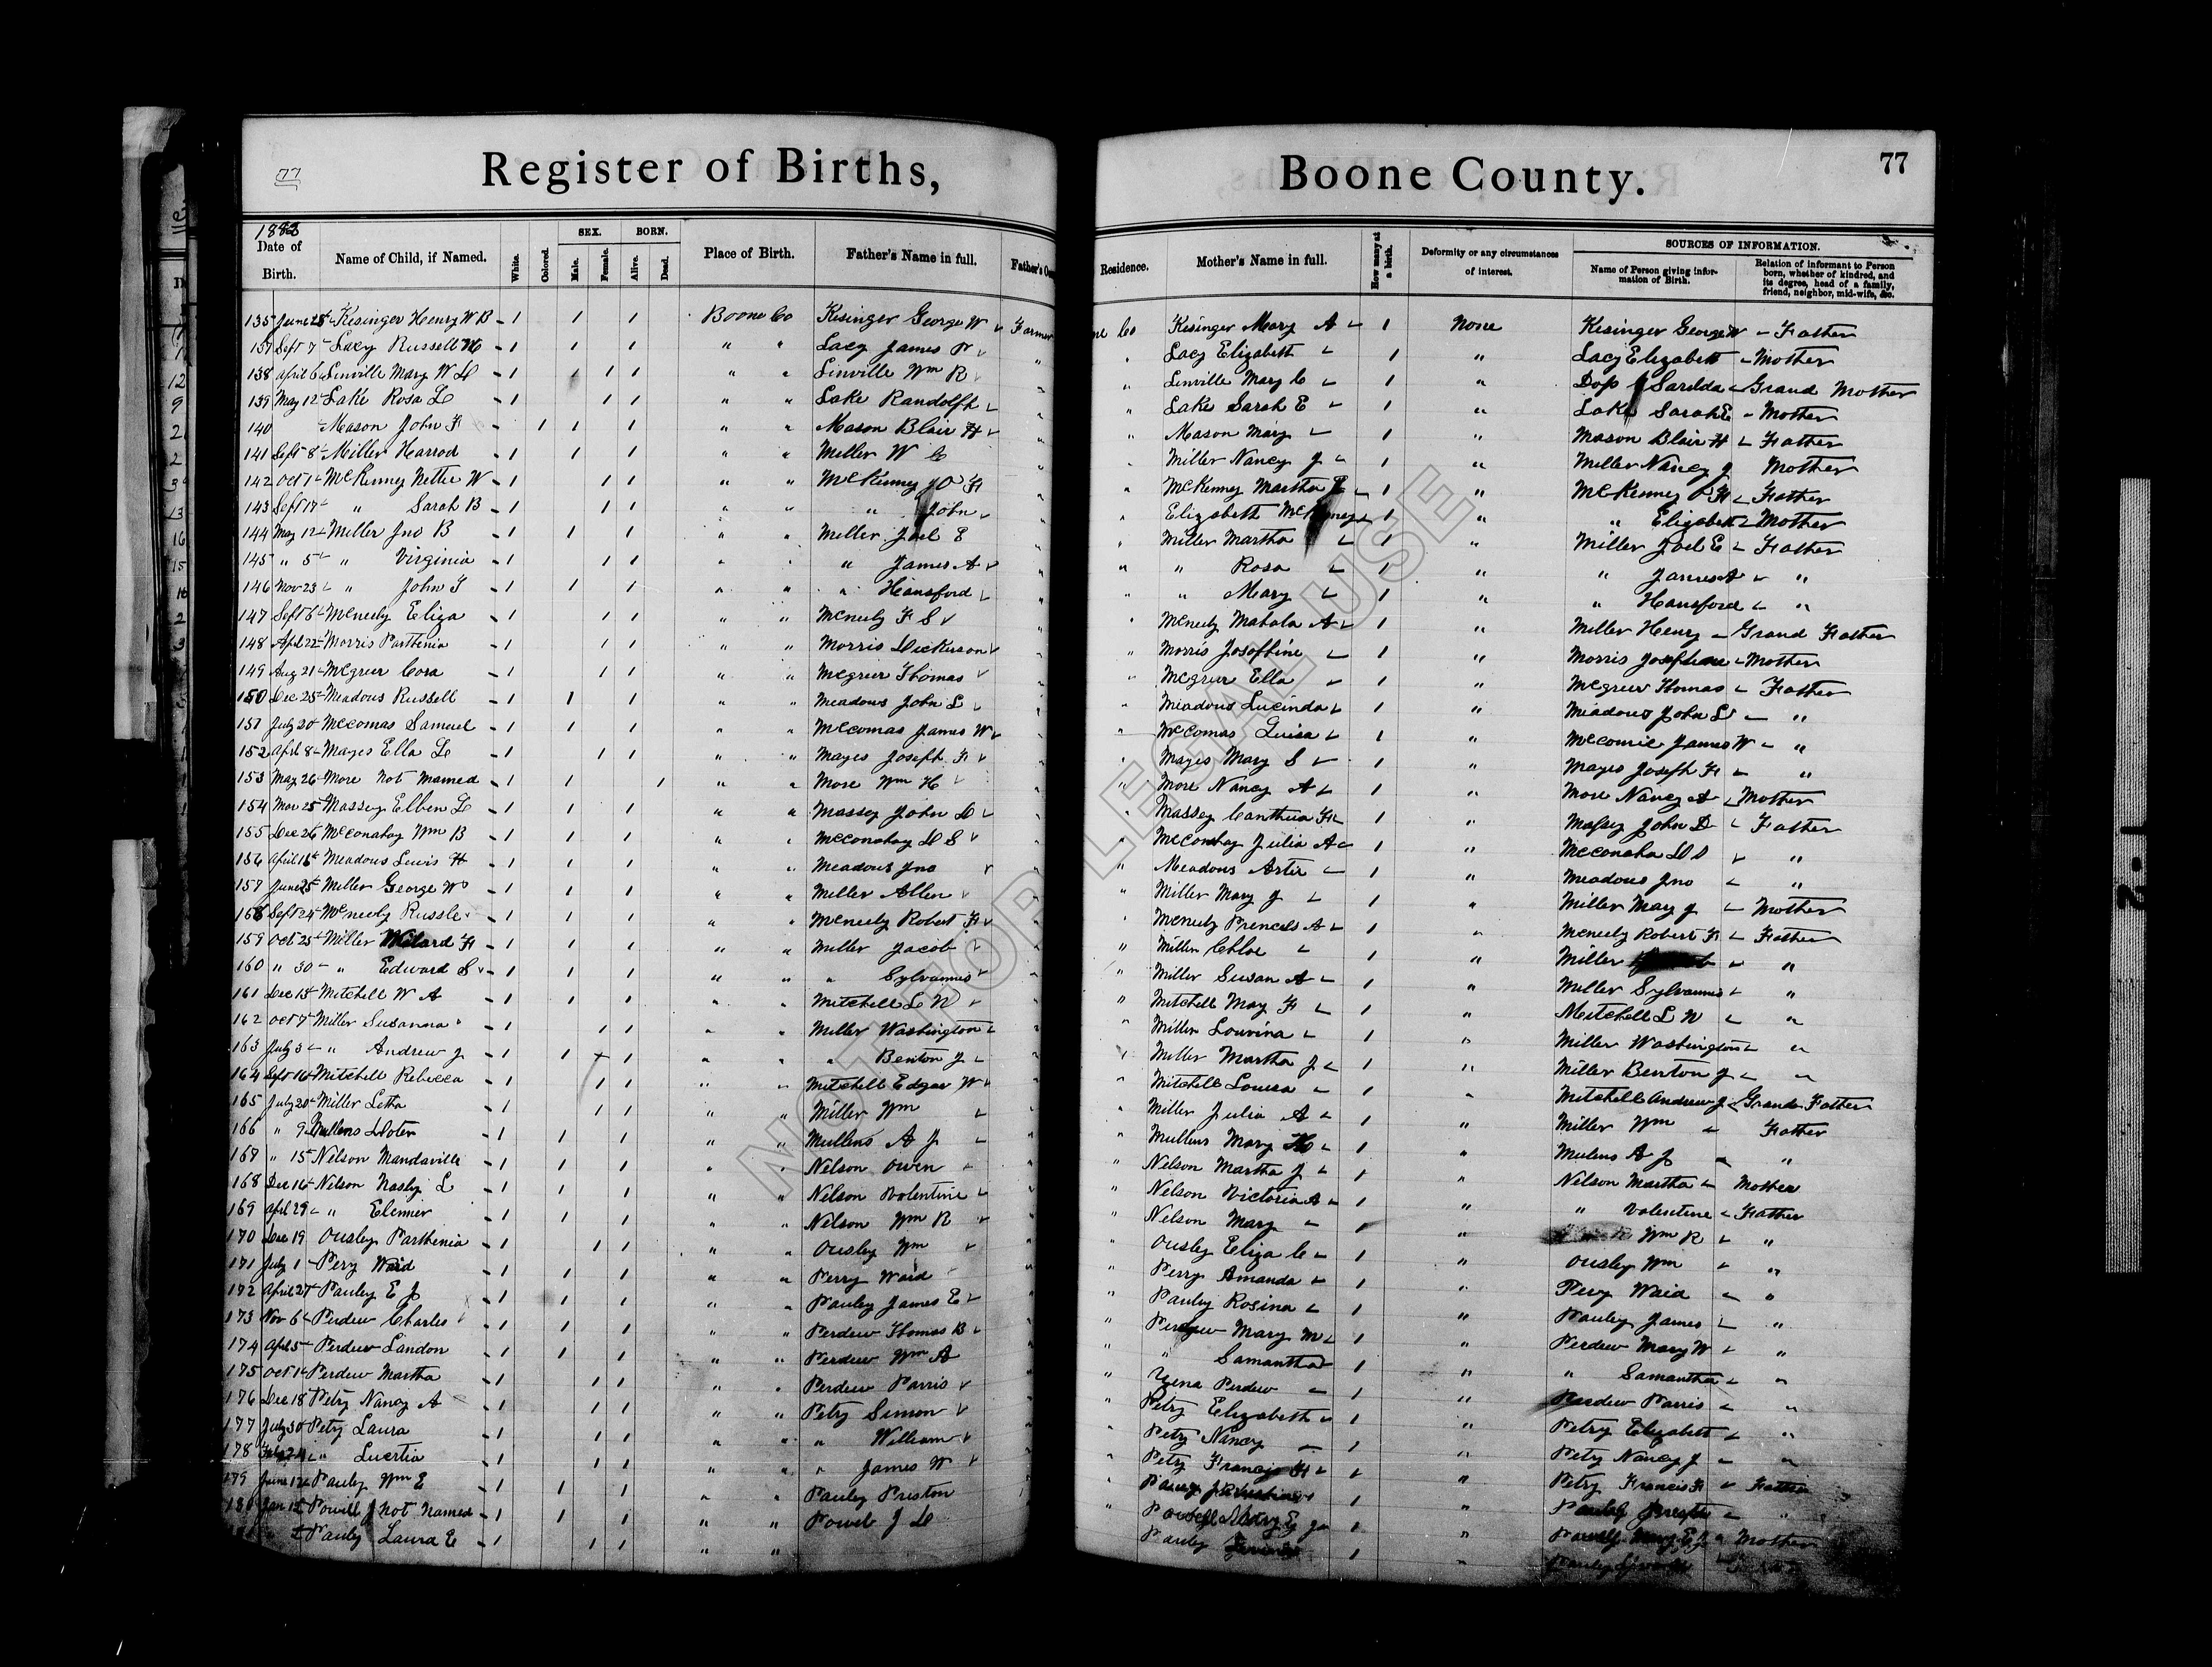 Register of Births,
Boone County.
77
77
1882
Date of Birth.
Name of Child, if Named.
White.
Colored.
SEX.
Male.
Female.
BORN.
Alive.
Dead.
Place of Birth.
Father's Name in full.
Father's
Residence.
Mother's Name in full.
How many at a birth.
Deformity or any circumstances of interest.
SOURCES OF INFORMATION.
Name of Person giving information of Birth.
Relation of informant to Person born, whether of kindred, and its degree, head of a family, friend, neighbor, mid-wife, &c.
135 June 28 Kisinger Henry W B 1 1 1 Boone Co Kisinger George W Farmer Co Kisinger Mary A 1 None Kisinger George W Father
137 Sept 7 Lacy Russell 1 1 1 " " Lacy James " Lacy Elizabeth 1 " Lacy Elizabeth Mother
138 April 6 Linville Mary W D 1 1 1 " " Linville Wm R " Linville Mary C 1 " Sarilda Grand Mother
139 May 12 Lake Rosa L 1 1 1 " " Lake Randolph " Lake Sarah E 1 " Lake Sarah E Mother
140 Mason John F 1 1 1 " " Mason Blair H " Mason Mary 1 " Mason Blair H Father
141 Sept 8 Miller Harrod 1 1 1 " " Miller W C " Miller Nancy J 1 " Miller Nancy J Mother
142 Oct 1 McKinney Nettie W 1 1 1 " " McKinney F " McKenney Martha 1 " McKenney F Father
143 Sept 17 " Sarah B 1 1 1 " " " John " Elizabeth 1 " " Elizabeth Mother
144 May 12 Miller Jno B 1 1 1 " " Miller Joel E " Miller Martha 1 " Miller Joel E Father
145 " 5 " Virginia 1 1 1 " " " James A " " Rosa 1 " " James A "
146 Nov 23 " John 1 1 1 " " " Hansford " " Mary 1 " " Hansford "
147 Sept 6 McNeely Eliza 1 1 1 " " McNeely F S " McNeely Mahala A 1 " Miller Henry Grand Father
148 April 22 Morris Parthenia 1 1 1 " " Morris Dickerson " Morris Josephine 1 " Morris Josephine Mother
149 Aug 21 McGrew Cora 1 1 1 " " McGrew Thomas " McGrew Ella 1 " McGrew Thomas Father
150 Dec 25 Meadows Russell 1 1 1 " " Meadows John L " Meadows Lucinda 1 " Meadows John "
151 July 20 McComas Samuel 1 1 1 " " McComas James W " McComas Luisa 1 " James W "
152 April 8 Mayes Ella L 1 1 1 " " Mayes Joseph F " Mayes Mary S 1 " Mayes Joseph F "
153 May 26 More Not Named 1 1 1 " " More Wm H " More Nancy A 1 " More Nancy A Mother
154 Massey L 1 1 1 " " Massey John D " Massey F 1 " Massey John D Father
155 Dec 26 McConahay Wm B 1 1 1 " " McConahay D S " McConahay Julia A 1 " McConaha "
156 April Meadows Lewis H 1 1 1 " " Meadows Jno " Meadows 1 " Meadows Jno "
157 June 25 Miller George W 1 1 1 " " Miller Allen " Miller Mary J 1 " Miller Mary J Mother
158 Sept 24 McNeely Russle 1 1 1 " " McNeely Robert F " McNeely A 1 " McNeely Robert F Father
159 Oct 25 Miller F 1 1 1 " " Miller Jacob " Miller Chloe 1 " Miller "
160 " 30 " Edward S 1 1 1 " " " Sylvannus " Miller Susan A 1 " Miller Sylvannus "
161 Dec Mitchell W A 1 1 1 " " Mitchell L N " Mitchell F 1 " Mitchell L N "
162 Oct 7 Miller Susanna 1 1 1 " " Miller Washington " Miller Louvina 1 " Miller Washington "
163 July 3 " Andrew J 1 1 1 " " " Benton J " Miller Martha J 1 " Miller Benton J "
164 Sept 16 Mitchell Rebecca 1 1 1 " " Mitchell Edgar W " Mitchell Louisa 1 " Mitchell Andrew J Grand Father
165 July 20 Miller Letha 1 1 1 " " Miller Wm " Miller Julia A 1 " Miller Wm Father
166 " 9 Mullens 1 1 1 " " Mullens A J " Mullens Mary 1 " A J "
167 " 15 Nelson Mandaville 1 1 1 " " Nelson Owen " Nelson Martha J 1 " Nelson Martha Mother
168 Dec 16 Nelson Nasby L 1 1 1 " " Nelson Valentine " Nelson Victoria A 1 " " Valentine Father
169 April 29 " 1 1 1 " " Nelson Wm R " Nelson Mary 1 " Wm R "
170 Dec 19 Ousley Parthenia 1 1 1 " " Ousley Wm " Ousley Eliza C 1 " Ousley Wm "
171 July 1 Pery Waid 1 1 1 " " Perry Waid " Perry Amanda 1 " Pery Waid "
172 April 27 Pauley E J 1 1 1 " " Pauley James E " Pauley Rosina 1 " Pauley James "
173 Nov 6 Perdew Charles 1 1 1 " " Perdew Thomas B " Perdew Mary M 1 " Perdew Mary "
174 April 5 Perdew Landon 1 1 1 " " Perdew Wm A " " Samantha 1 " " Samantha "
175 Oct 14 Perdew Martha 1 1 1 " " Perdew Parris " Perdew 1 " Perdew Parris "
176 Dec 18 Petry Nancy A 1 1 1 " " Petry Simon " Petry Elizabeth 1 " Petry Elizabeth "
177 July 30 Petry Laura 1 1 1 " " " William " Petry Nancy 1 " Petry Nancy J "
178 " Lucrtia 1 1 1 " " " James W " Petry F 1 " Petry Francis F Father
179 June Pauley Wm E 1 1 1 " " Pauley Preston 1 " "
180 Jan Powell Not Named 1 1 1 " " Powell J 1 " Mother
Pauley Laura E 1 1 1 " " Pauley 1
NOT FOR LEGAL USE